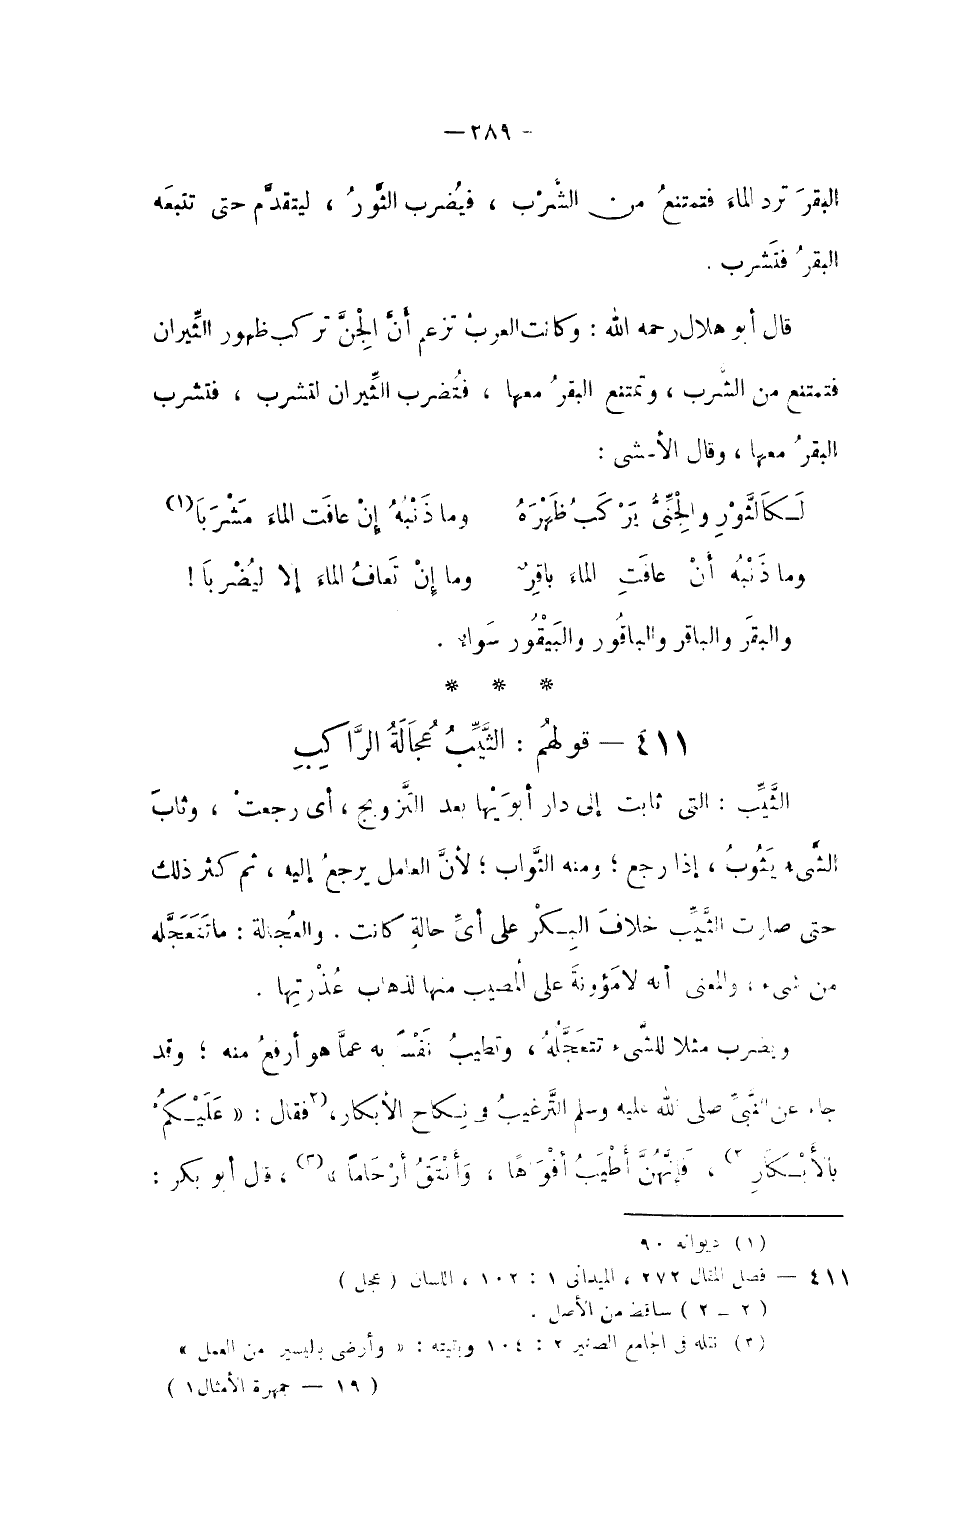 - ٢٨٩ —
البقرَ ترد الماءَ فتمتنعُ من الشُّرْب ، فيُضرب الثَّورُ ، ليتقدَّم حتى تتبعَه
البقرُ فتَشرب .
قال أبو هلال رحمه الله : وكانت العربُ تزعم أنَّ الجِنَّ تركب ظهور الثِّيران
فتمتنع من الشُّرب ، وتمتنع البقرُ معها ، فتُضرب الثِّيران لتشرب ، فتشرب
البقرُ معها ، وقال الأعشى :
لَكالثَّوْرِ والجِنِّىُّ يَرْكَبُ ظَهْرَهُ وما ذَنْبُهُ إنْ عافَت الماءَ مَشْرَبَا (١)
وما ذَنْبُه أنْ عافَتِ الماءَ باقِرٌ وما إنْ تَعافُ الماءَ إلا ليُضْربَا !
والبقَر والباقر والباقُور والبَيْقُور سَواء .
* * *
٤١١ — قولهُم : الثَّيِّبُ عُجَالَةُ الرَّاكِبِ
الثَّيِّب : التى ثابت إلى دار أبوَيْها بعد التَّزويج ، أى رجعتْ ، وثابَ
الشَّىء يَثُوبُ ، إذا رجع ؛ ومنه الثَّواب ؛ لأنَّ العامل يرجعُ إليه ، ثم كثر ذلك
حتى صارت الثَّيِّب خلافَ البِكْر على أىِّ حالةٍ كانت . والعُجالة : ما تَتَعَجَّله
من شىء ، والمعنى أنه لا مَؤونةَ على المُصيب منها لذهاب عُذْرتِها .
ويضرب مثلا للشَّىء تتعَجَّلُهُ ، وتطيبُ نَفْسًا به عمَّا هو أرفعُ منه ؛ وقد
جاء عن النَّبىِّ صلى الله عليه وسلم التَّرغيبُ فى نِكاح الأبكار ، (٢ فقال : « عَلَيْكُمُ
بالأَبْكَارِ ٢) ، فَإِنَّهُنَّ أَطْيَبُ أفْوَاهًا ، وَأَنْتَقُ أرْحَامًا » (٣) ، قال أبو بكر :
(١) ديوانه ٩٠
٤١١ — فصل المقال ٢٧٢ ، الميدانى ١ : ١٠٢ ، اللسان ( عجل )
( ٢ – ٢ ) ساقط من الأصل .
(٣) نقله فى الجامع الصغير ٢ : ١٠٤ وبقيته : « وأرضى باليسير من العمل »
( ١٩ — جمهرة الأمثال ١ )